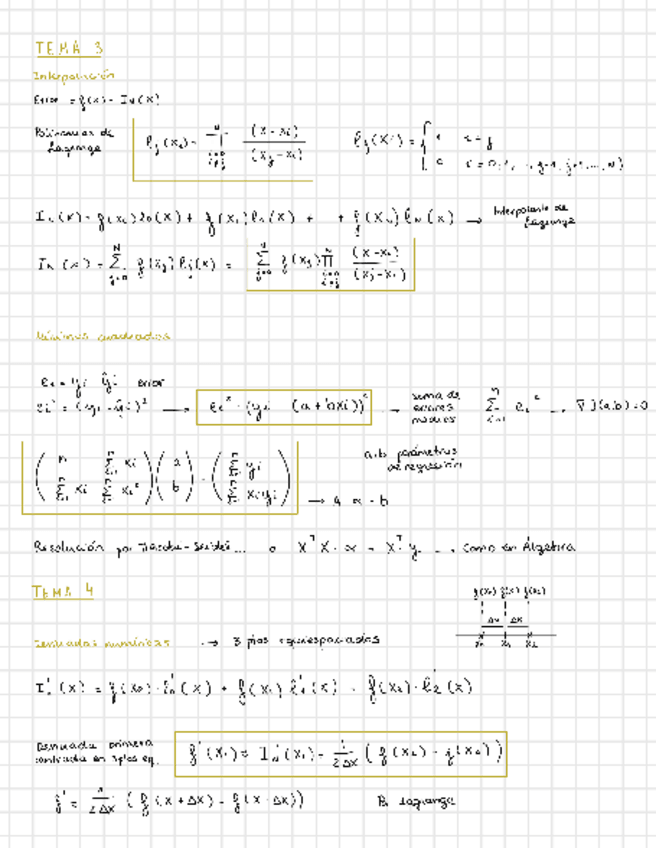 TEMA 3
Interpolación
Error = f(x) - I_N(x)
Polinomios de Lagrange
l_j(x) = ∏_{i=0, i≠j}^{N} (x-x_i)/(x_j-x_i)
l_j(x_i) = { 1 i=j
0 i=0,1,...,j-1,j+1,...,N
I_N(x) = f(x_0) l_0(x) + f(x_1) l_1(x) + + f(x_N) l_N(x) → Interpolante de Lagrange
I_N(x) = ∑_{j=0}^{N} f(x_j) l_j(x) = ∑_{j=0}^{N} f(x_j) ∏_{i=0, i≠j}^{N} (x-x_i)/(x_j-x_i)
Mínimos cuadrados
e_i = y_i ŷ_i error
e_i² = (y_i - ŷ_i)² → e_i² = (y_i (a+bx_i))² → suma de errores medios ∑_{i=1}^{n} e_i² → ∇J(a,b)=0
( n ∑x_i ; ∑x_i ∑x_i² ) ( a ; b ) = ( ∑y_i ; ∑x_i y_i )
a,b parámetros de regresión
→ A α = b
Resolución por ... o X^T X · α = X^T y ... como en Álgebra
TEMA 4
f(x_0) f(x_1) f(x_2)
Δx Δx
x_0 x_1 x_2
Derivadas numéricas → 3 ptos equiespaciados
I'_N(x) = f(x_0) · l'_0(x) + f(x_1) l'_1(x) + f(x_2) · l'_2(x)
Derivada primera centrada en 3 ptos eq.
f'(x_1) ≈ I'_N(x_1) = 1/(2Δx) ( f(x_2) - f(x_0) )
f' = 1/(2Δx) ( f(x+Δx) - f(x-Δx) )
Lagrange